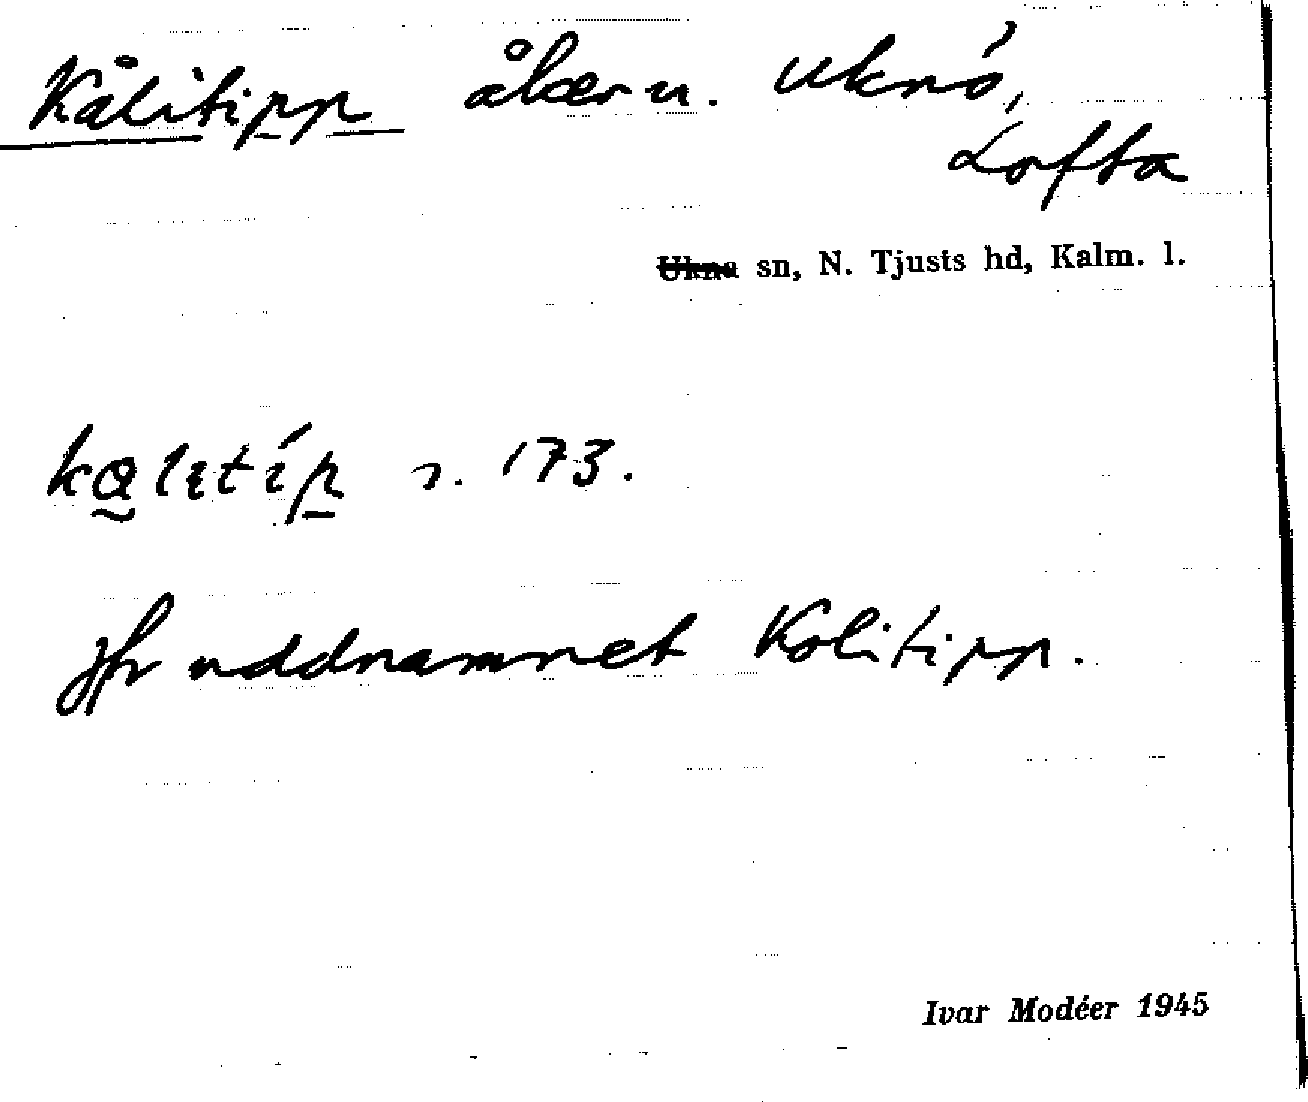 Kålitipp åker u. Uknö,
Lofta
Ukna sn, N. Tjusts hd, Kalm. l.
s. 173.
Jfr uddnamnet Kolitipp.
Ivar Modéer 1945